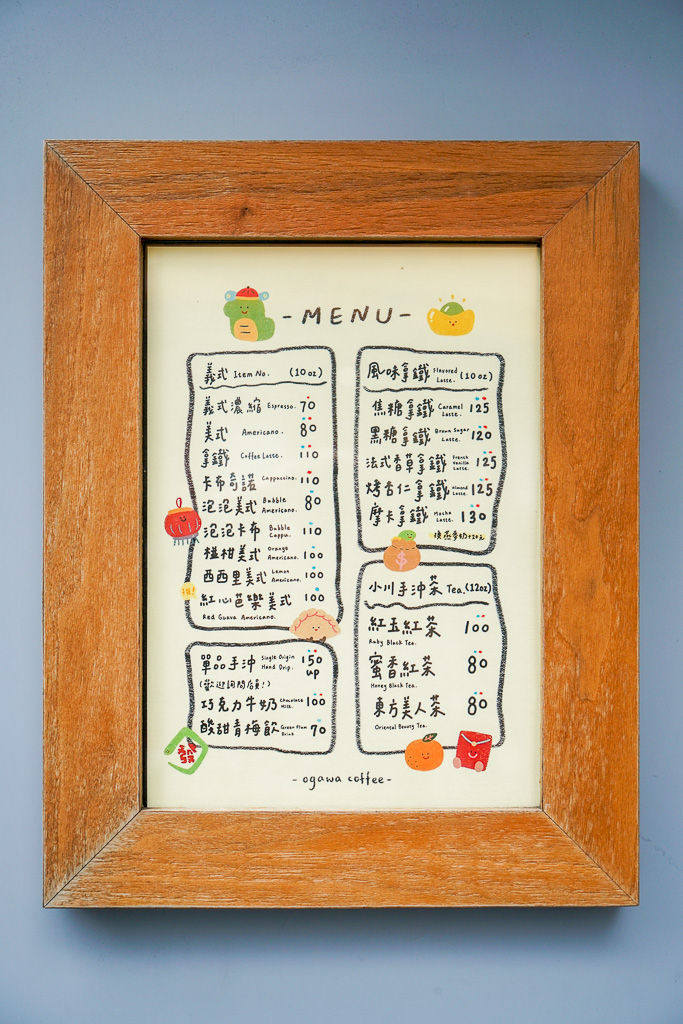 -MENU-
義式 Item No. (10oz)
義式濃縮 Espresso. 70
美式 Americano. 80
拿鐵 Coffee Latte. 110
卡布奇諾 Cappuccino. 110
泡泡美式 Bubble Americano. 80
泡泡卡布 Bubble Cappu. 110
椪柑美式 Orange Americano. 100
西西里美式 Lemon Americano. 100
紅心芭樂美式 100
Red Guava Americano.
單品手沖 Single Origin Hand Drip. 150 up
(歡迎詢問店員!)
巧克力牛奶 Chocolate Milk. 100
酸甜青梅飲 Green Plum Drink 70
風味拿鐵 Flavored Latte. (10oz)
焦糖拿鐵 Caramel Latte. 125
黑糖拿鐵 Brown Sugar Latte. 120
法式香草拿鐵 French Vanilla Latte. 125
烤杏仁拿鐵 Almond Latte. 125
摩卡拿鐵 Mocha Latte. 130
換燕麥奶+20元
小川手沖茶 Tea. (12oz)
紅玉紅茶 100
Ruby Black Tea.
蜜香紅茶 80
Honey Black Tea.
東方美人茶 80
Oriental Beauty Tea.
發
-ogawa coffee-